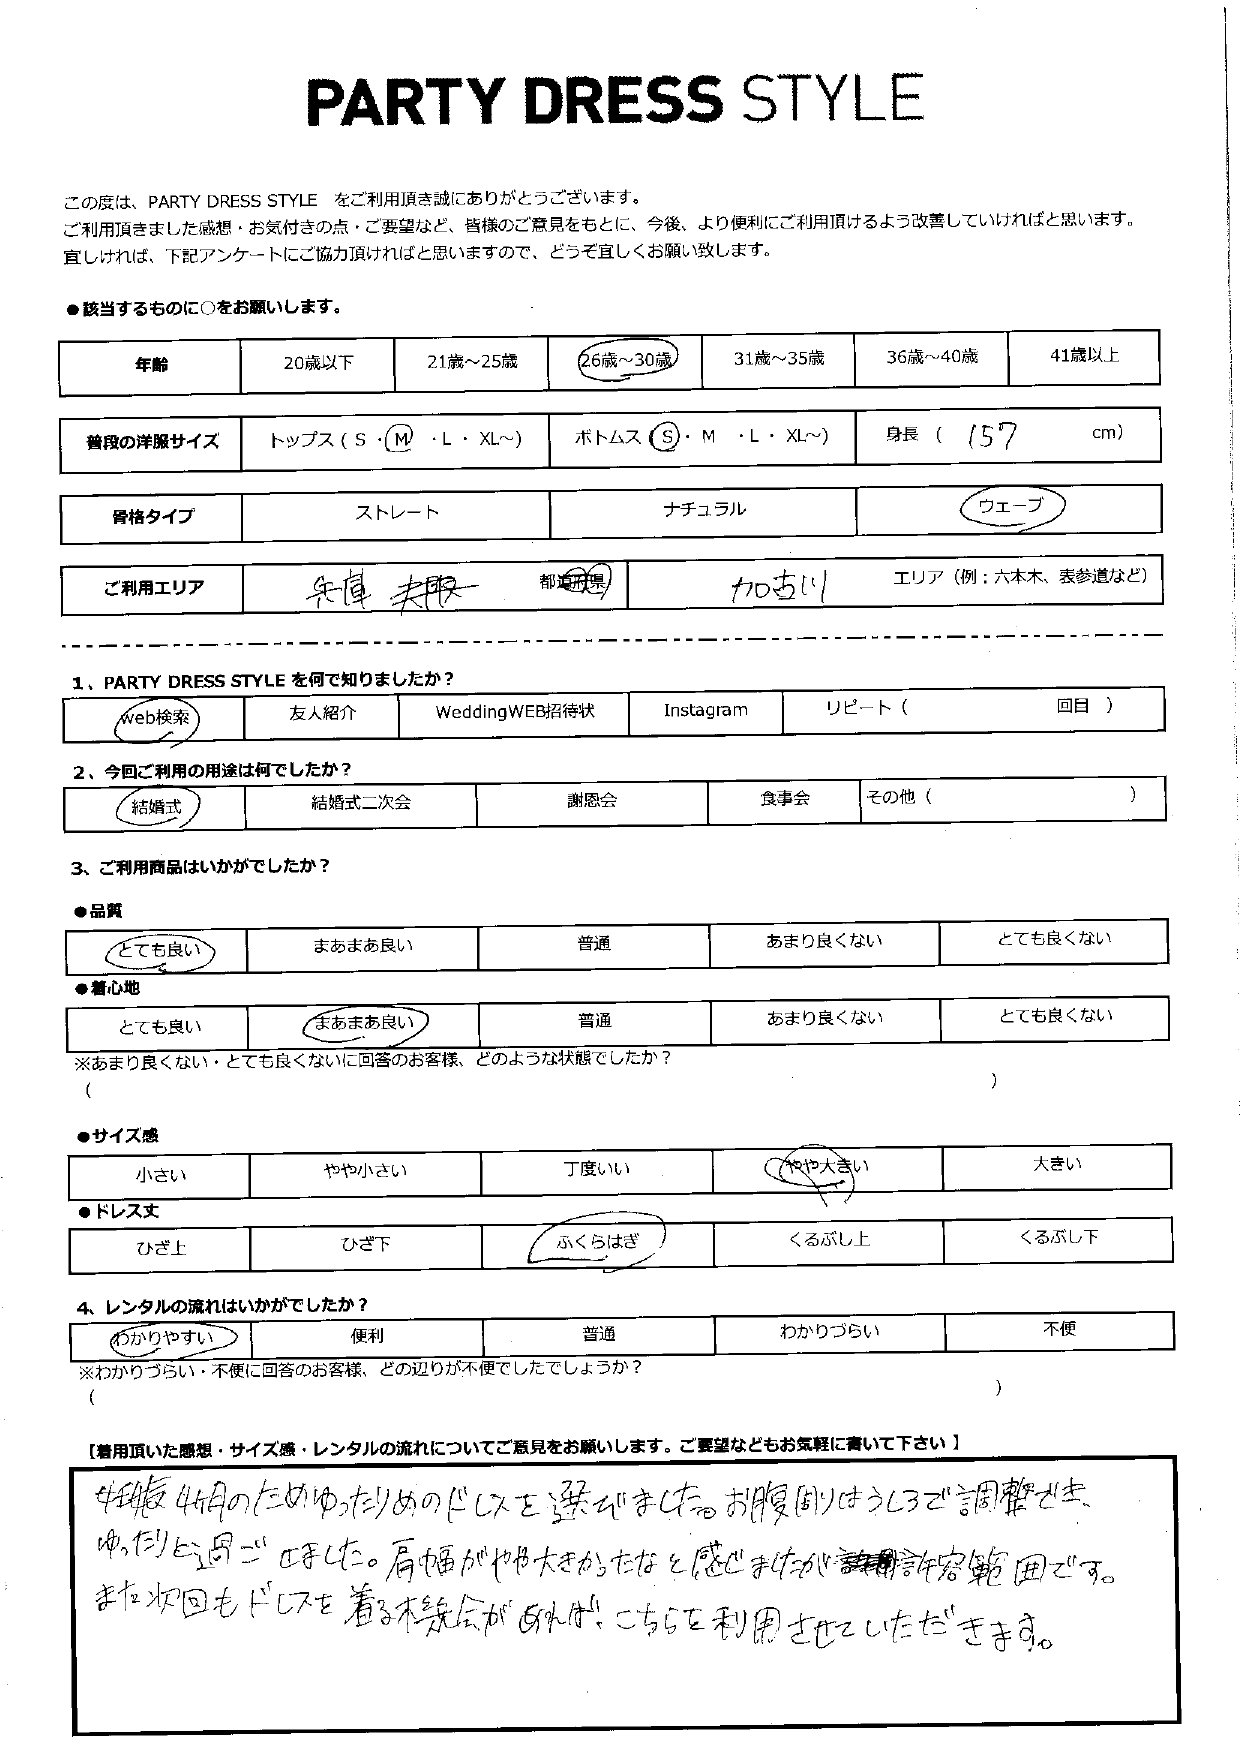 PARTY DRESS STYLE
この度は、PARTY DRESS STYLE をご利用頂き誠にありがとうございます。
ご利用頂きました感想・お気付きの点・ご要望など、皆様のご意見をもとに、今後、より便利にご利用頂けるよう改善していければと思います。
宜しければ、下記アンケートにご協力頂ければと思いますので、どうぞ宜しくお願い致します。
●該当するものに○をお願いします。
年齢 20歳以下 21歳～25歳 26歳～30歳 31歳～35歳 36歳～40歳 41歳以上
普段の洋服サイズ トップス ( S ・ M ・ L ・ XL～) ボトムス ( S ・ M ・ L ・ XL～) 身長 ( 157 cm)
骨格タイプ ストレート ナチュラル ウェーブ
ご利用エリア 兵庫 都道府県 加古川 エリア（例：六本木、表参道など）
1、PARTY DRESS STYLE を何で知りましたか？
web検索 友人紹介 WeddingWEB招待状 Instagram リピート ( 回目 )
2、今回ご利用の用途は何でしたか？
結婚式 結婚式二次会 謝恩会 食事会 その他 ( )
3、ご利用商品はいかがでしたか？
●品質
とても良い まあまあ良い 普通 あまり良くない とても良くない
●着心地
とても良い まあまあ良い 普通 あまり良くない とても良くない
※あまり良くない・とても良くないに回答のお客様、どのような状態でしたか？
( )
●サイズ感
小さい やや小さい 丁度いい やや大きい 大きい
●ドレス丈
ひざ上 ひざ下 ふくらはぎ くるぶし上 くるぶし下
4、レンタルの流れはいかがでしたか？
わかりやすい 便利 普通 わかりづらい 不便
※わかりづらい・不便に回答のお客様、どの辺りが不便でしたでしょうか？
( )
【着用頂いた感想・サイズ感・レンタルの流れについてご意見をお願いします。ご要望などもお気軽に書いて下さい】
妊娠4ヶ月のためゆったりめのドレスを選びました。お腹周りはうしろで調整でき、
ゆったりと過ごせました。肩幅がやや大きかったなと感じましたが許容範囲です。
また次回もドレスを着る機会があれば、こちらを利用させていただきます。